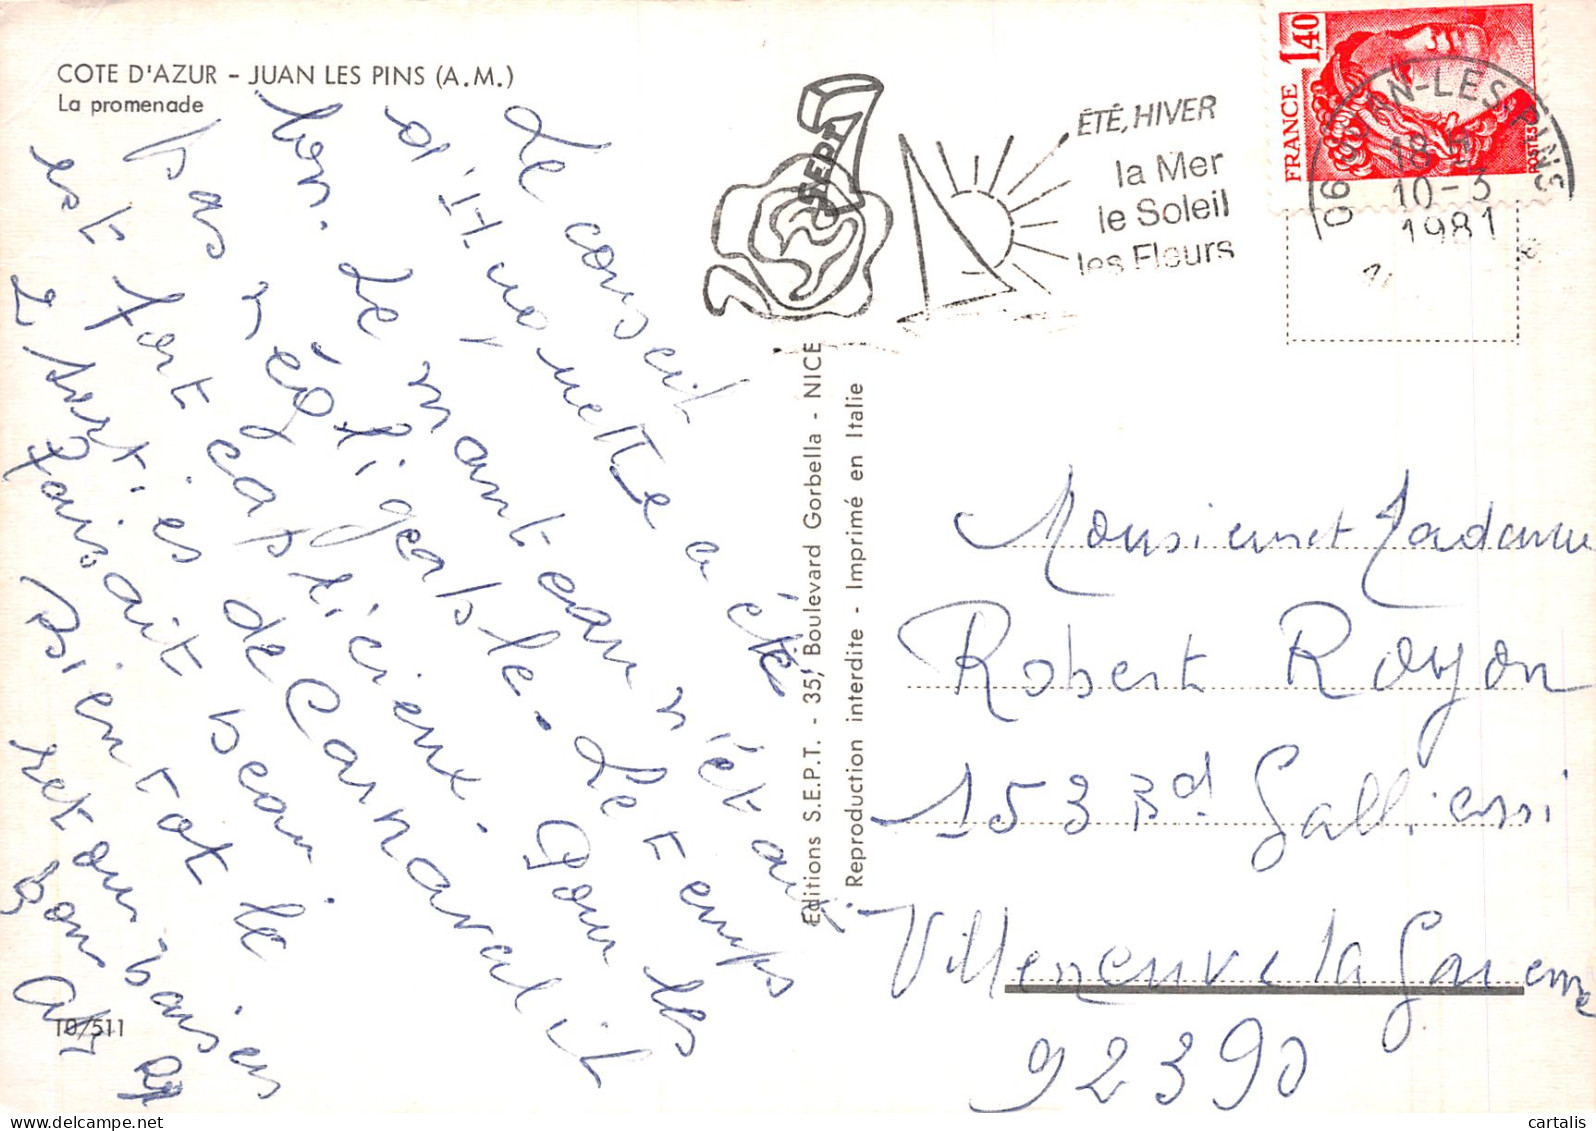 COTE D'AZUR - JUAN LES PINS (A.M.)
La promenade
Le conseil
d'Huguette a été
bon. Le manteau n'était
pas négligeable. Le temps
est fort capricieux. Pour les
2 sorties de Carnaval il
faisait beau.
Bientôt le
retour. baisers
Bons
10/511
Editions S.E.P.T. - 35, Boulevard Gorbella - NICE
Reproduction interdite - Imprimé en Italie
SEPT
ÉTÉ, HIVER
la Mer
le Soleil
les Fleurs
1,40
FRANCE
POSTES
06 JUAN-LES-PINS
18 H
10-3
1981
Monsieur et Madame
Robert Royon
153 Bd Gallieni
Villeneuve la Garenne
92390